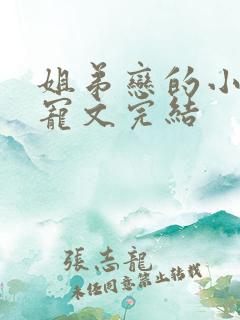 姐弟戀的小
寵文完結
張志龍
未經同意禁止轉載